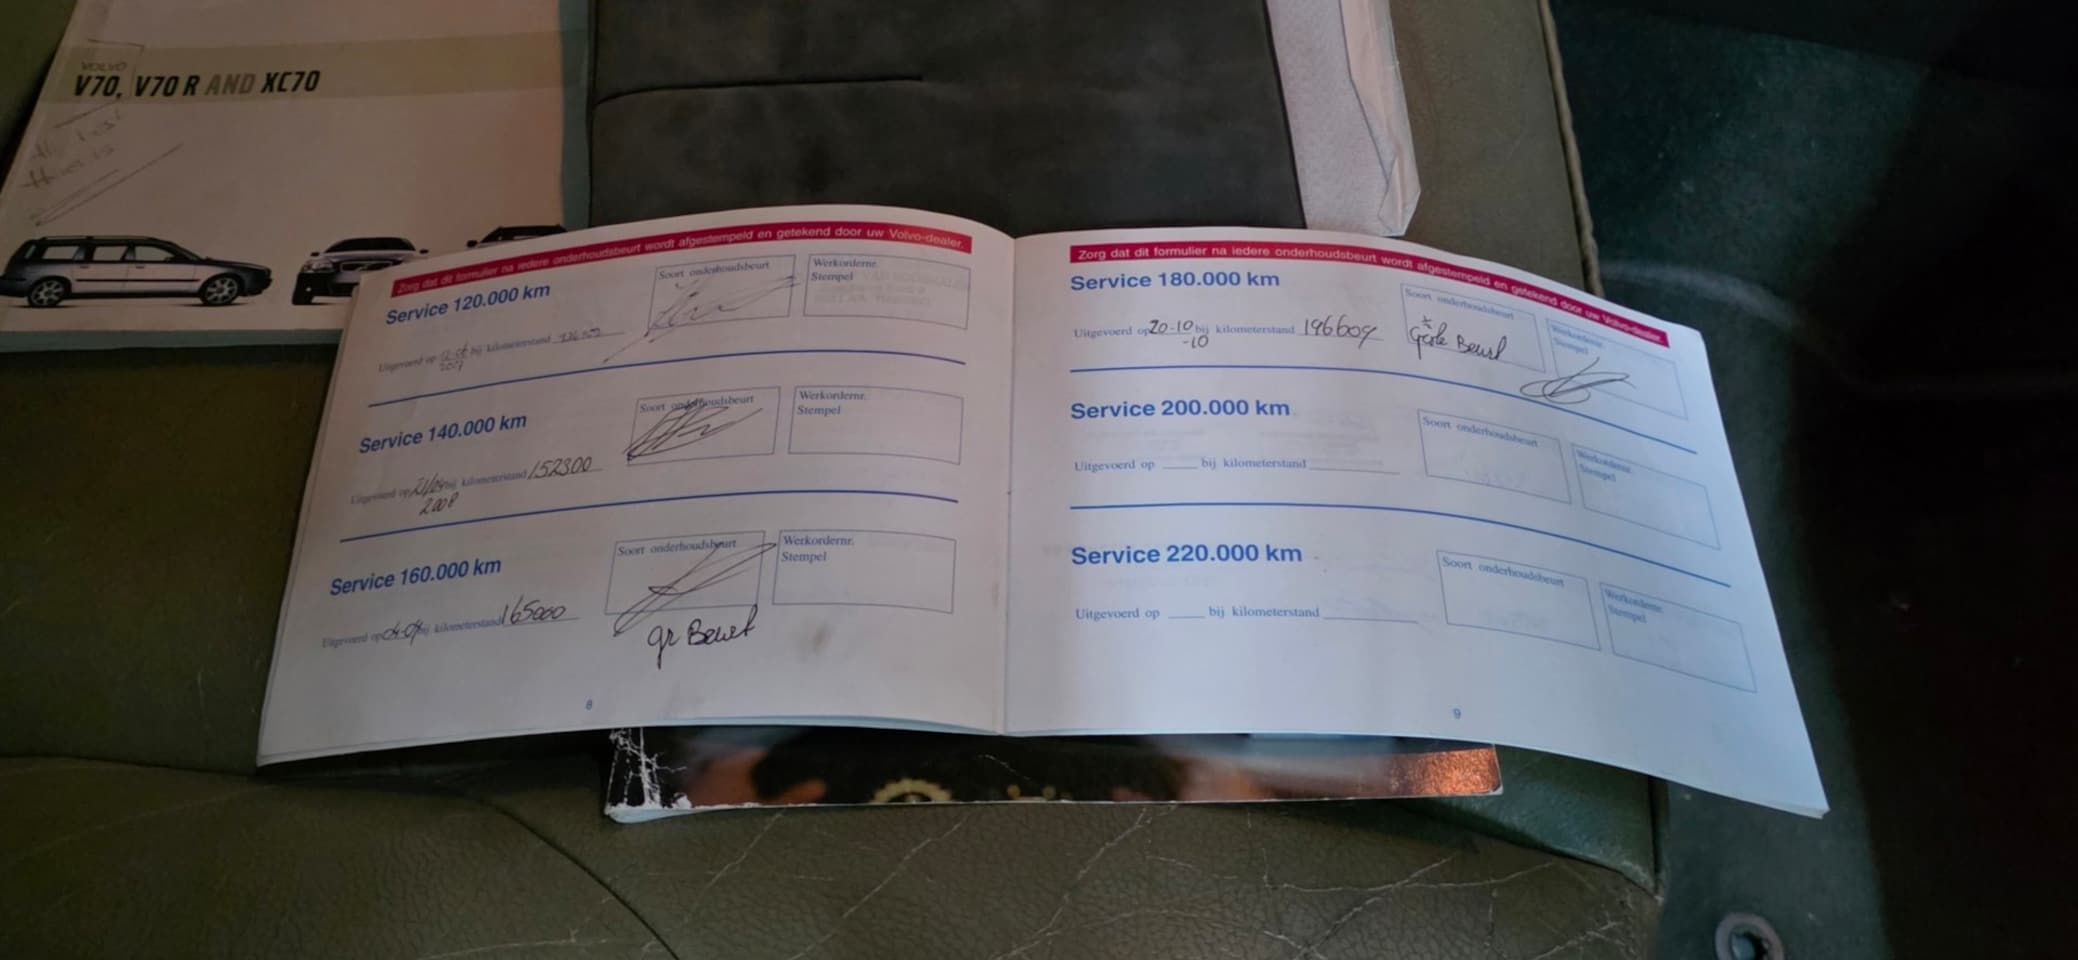 VOLVO
V70, V70 R AND XC70
Zorg dat dit formulier na iedere onderhoudsbeurt wordt afgestempeld en getekend door uw Volvo-dealer.
Service 120.000 km
Soort onderhoudsbeurt
Werkordernr.
Stempel
Uitgevoerd op bij kilometerstand
2007
Service 140.000 km
Soort onderhoudsbeurt
Werkordernr.
Stempel
Uitgevoerd op bij kilometerstand 152300
2008
Service 160.000 km
Soort onderhoudsbeurt
Werkordernr.
Stempel
Uitgevoerd op bij kilometerstand 165000
gr Beurt
8
Zorg dat dit formulier na iedere onderhoudsbeurt wordt afgestempeld en getekend door uw Volvo-dealer.
Service 180.000 km
Soort onderhoudsbeurt
Werkordernr.
Stempel
Uitgevoerd op 20-10 bij kilometerstand 196609
-10
Beurt
Service 200.000 km
Soort onderhoudsbeurt
Werkordernr.
Stempel
Uitgevoerd op ____ bij kilometerstand ____
Service 220.000 km
Soort onderhoudsbeurt
Werkordernr.
Stempel
Uitgevoerd op ____ bij kilometerstand ____
9